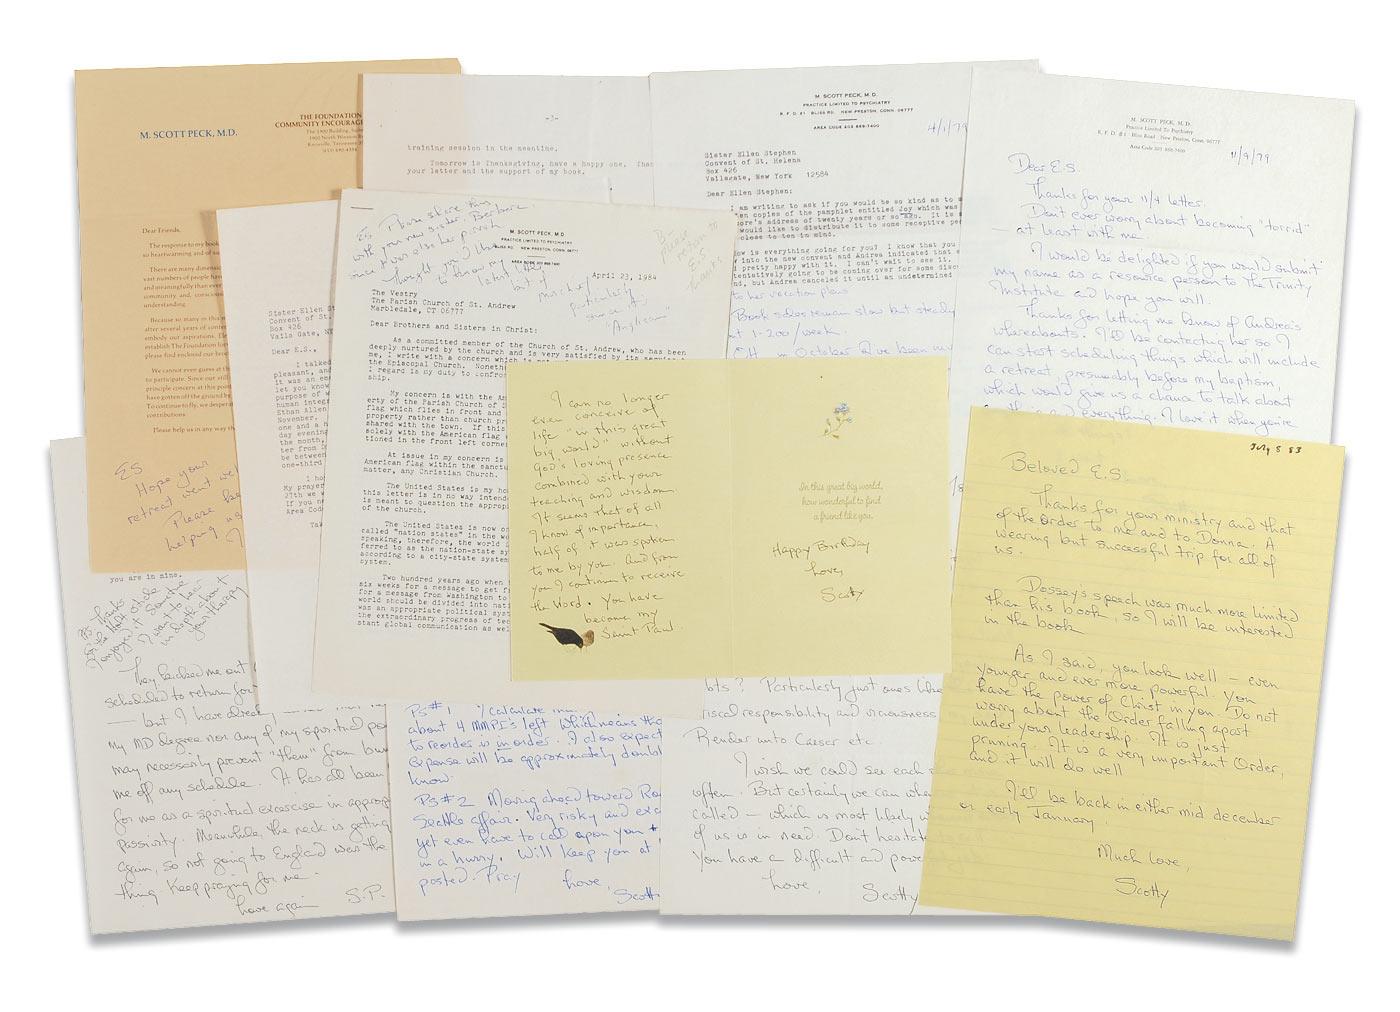 M. SCOTT PECK, M.D.
THE FOUNDATION
COMMUNITY ENCOURAG
The 1900 Building, Suite
1900 North Winston R
Knoxville, Tennessee 3
(615) 690-4334
Dear Friends,
The response to my book
so heartwarming and of su
There are many dimension
vast numbers of people have
and meaningfully than ever
community and, conscious
understanding.
Because so many in this
after several years of contem
embody our aspirations. Ple
establish The Foundation for
please find enclosed our broc
We cannot even guess at th
to participate. Since our still
principle concern at this poin
have gotten off the ground by
To continue to fly, we desperate
contributions
Please help us in any way th
ES
Hope your
retreat went we
Please be
helping us
-3-
training session in the meantime.
Tomorrow is Thanksgiving, have a happy one. Than
your letter and the support of my book.
M. SCOTT PECK, M.D.
PRACTICE LIMITED TO PSYCHIATRY
R. F. D. #1 BLISS RD. NEW PRESTON, CONN. 06777
AREA CODE 203 868-7400
4/1/79
Sister Ellen Stephen
Convent of St. Helena
Box 426
Vailsgate, New York 12584
Dear Ellen Stephen:
I am writing to ask if you would be so kind as to s
en copies of the pamphlet entitled Joy which was
ore's address of twenty years or so ago. It is s
would like to distribute it to some receptive pe
close to ten in mind.
How is everything going for you? I know that you
into the new convent and Andrea indicated that e
pretty happy with it. I can't wait to see it.
tentatively going to be coming over for some disc
nd, but Andrea canceled it until an undetermined
to her vacation plans
Book sales remain slow but steady
at 1-200/week.
in October I've been my
M. SCOTT PECK, M.D.
Practice Limited To Psychiatry
R. F. D. #1 Bliss Road New Preston, Conn. 06777
Area Code 203 868-7400
11/9/79
Dear E.S.
Thanks for your 11/4 letter.
Don't ever worry about becoming "torrid"
— at least with me.
I would be delighted if you would submit
my name as a resource person to the Trinity
Institute and hope you will.
Thanks for letting me know of Andrea's
whereabouts. I'll be contacting her so I
can start scheduling things, which will include
a retreat presumably before my baptism,
which would give us a chance to talk about
and everything. I love it when you're
Sister Ellen St
Convent of St.
Box 426
Vails Gate, NY
Dear E.S.,
I talked
pleasant, and
it was an en
let you know
purpose of w
human integr
Ethan Allen
November.
one and a n
day evening
the month,
ter from D
be between
one-third
I ho
My prayer
27th we w
If you n
Area Code
Tak
ES Please share this
with your new sister, Barbara
since it was also her parish
Thought you'd like
to know my
latest bit
of
mischief
particularly
since it
"Anglican"
B-
please
return to
E.S.
Thanks
M. SCOTT PECK, M.D
PRACTICE LIMITED TO PSYCHIATRY
BLISS RD. NEW PRESTON, CONN. 06777
AREA CODE 203 868-7400
April 23, 1984
The Vestry
The Parish Church of St. Andrew
Marbledale, CT 06777
Dear Brothers and Sisters in Christ:
As a committed member of the Church of St. Andrew, who has been
deeply nurtured by the church and is very satisfied by its
me, I write with a concern which is not
the Episcopal Church. Noneth
I regard is my duty to confron
ship.
My concern is with the Am
erty of the Parish Church of S
flag which flies in front and
property rather than church pr
shared with the town. If this
solely with the American flag w
tioned in the front left corner
At issue in my concern is
American flag within the sanctu
matter, any Christian Church.
The United States is my ho
this letter is in no way intend
is meant to question the approp
of the church.
The United States is now on
called "nation states" in the wo
speaking, therefore, the world
ferred to as the nation-state sy
according to a city-state system
system.
Two hundred years ago when t
six weeks for a message to get fr
for a message from Washington to
world should be divided into nati
was an appropriate political syst
the extraordinary progress of tec
stant global communication as wel
I can no longer
even conceive of
life "in this great
big world" without
God's loving presence
combined with your
teaching and wisdom.
It seems that of all
I know of importance,
half of it was spoken
to me by you. And from
you I continue to receive
the Word. You have
become my
Saint Paul.
In this great big world,
how wonderful to find
a friend like you.
Happy Birthday
Love,
Scotty
July 8 83
Beloved E.S.
Thanks for your ministry and that
of the Order to me and to Donna. A
wearing but successful trip for all of
us.
Dossey's speech was much more limited
than his book, so I will be interested
in the book
As I said, you look well — even
younger and ever more powerful. You
have the power of Christ in you. Do not
worry about the Order falling apart
under your leadership. It is just
pruning. It is a very important Order,
and it will do well
I'll be back in either mid december
or early January.
Much love,
Scotty
you are in mine.
They kicked me out
scheduled to return for
— but I have already
my MD degree nor any of my spiritual po
may necessarily prevent "them" from bum
me off any schedule. It has all been
for me as a spiritual excercise in approp
passivity. Meanwhile, the neck is getting
again, so not going to England was the
thing. Keep praying for me.
Love again S.P.
PS #1 I calculate
about 4 MMPI's left which means tha
to reorder is in order. I also expect
expense will be approximately doubl
know.
PS #2 Moving ahead toward Ro
Seattle affair. Very risky and exc
yet even have to call upon you +
in a hurry. Will keep you at
posted. Pray
Love,
Scott
bts? Particularly just ones like
iscal responsibility and viciousness
Render unto Caesar etc.
I wish we could see each
often. But certainly we can when
called — which is most likely w
of us is in need. Don't hesitate
You have a difficult and powe
Love,
Scotty